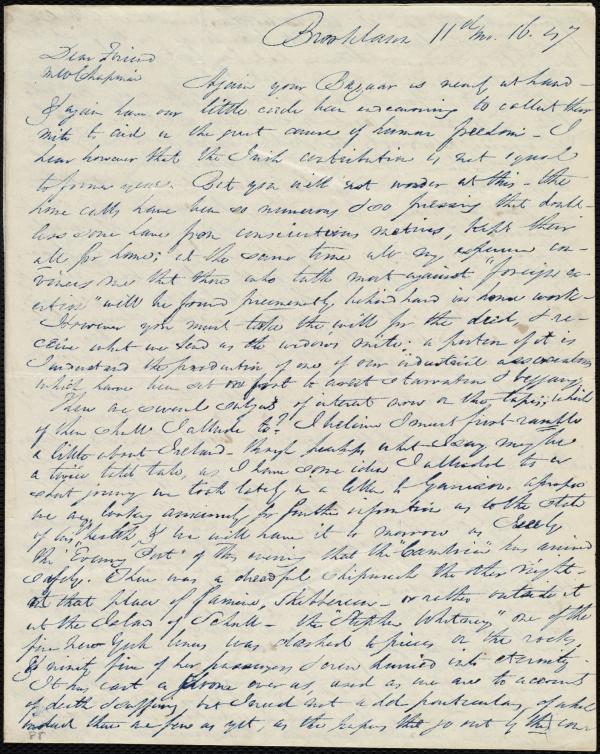 Brooklawn 11th mo. 16. 47
Dear Friend
M W Chapman
Again your Bazaar is nearly at hand -
& again have our little circle been endeavoring to collect their
mite to aid in the great cause of human freedom - I
hear however that the Irish contribution is not equal
to former years. But you will not wonder at this - the
home calls have been so numerous & so pressing that doubt-
less some have from conscientious motives, kept their
all for home; at the same time all my experience con-
vinces me that those who talk most against "foreign ex-
ertion" will be found frequently behind hand in home work -
However you must take the will for the deed & re-
ceive what we send as the widows mite: a portion of it is
I understand the production of one of our industrial associations
which have been set on foot to avert starvation & beggary
There are several subjects of interest now on the tapis; which
of them shall I allude to? I believe I must first ramble
a little about Ireland - though perhaps what I say may be
a twice told tale, as I have some idea I alluded to a
short journey we took lately in a letter to Garrison. apropos
we are looking anxiously for further information as to the state
of his health, & we will have it to morrow as I see by
the "Evening Post" of this evening that the "Cambria" has arrived
safely. There was a dreadful shipwreck the other night -
at that place of famine, Skibbereen - or rather outside it
at the Island of Schull - the "Stephen Whitney" one of the
fine New York liners was dashed to pieces on the rocks,
& ninety five of her passengers & crew hurried into eternity -
It has cast a gloom over us, used as we are to accounts
of death & suffering, but I need not add particulars, of which
indeed there are few as yet, as the papers that go out by this con-